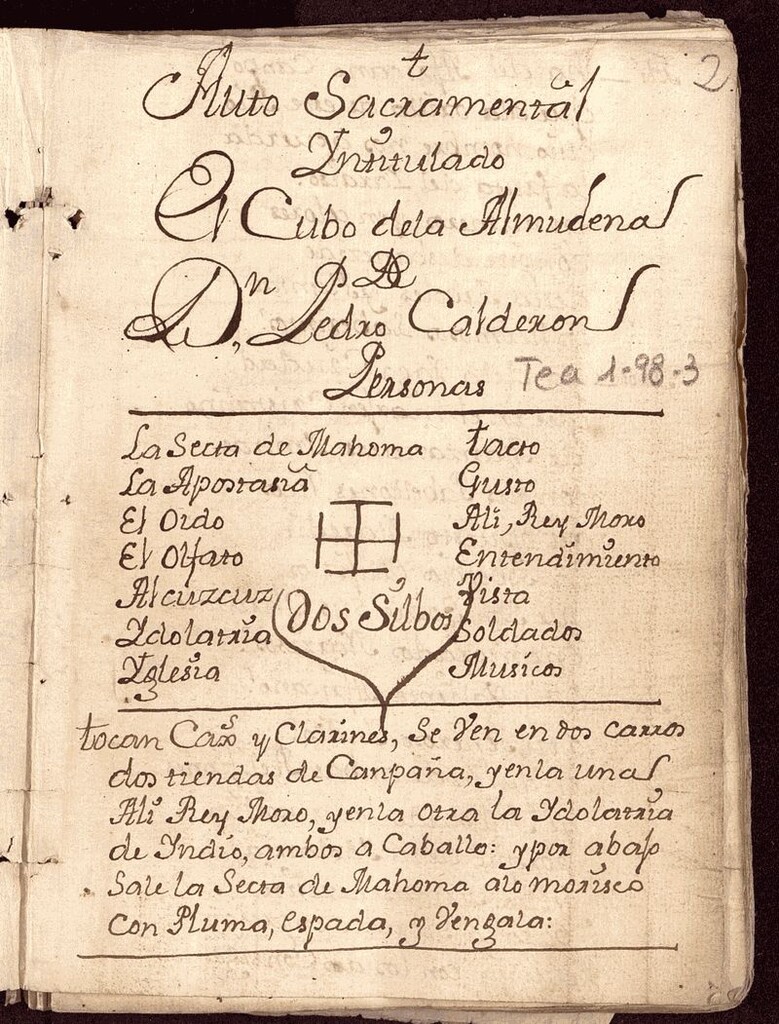 t
2
Auto Sacramental
Yntitulado
El Cubo dela Almudena
De
Dn, Pedro Calderon
Personas
Tea 1-98-3
La Secta de Mahoma
La Apostasia
El Oido
El Olfato
Alcuzcuz
Ydolatria
Yglesia
Dos Silbos
tacto
Gusto
Ali, Rey Moro
Entendimiento
Vista
Soldados
Musicos
tocan Caxs y Clarines, Se Ven en dos carros
dos tiendas de Canpaña, yenla una
Ali Rey Moro, yenla otra la Ydolatria
de Yndio, ambos a Caballo: ypor abajo
Sale la Secta de Mahoma alo morisco
Con Pluma, espada, y Vengala: